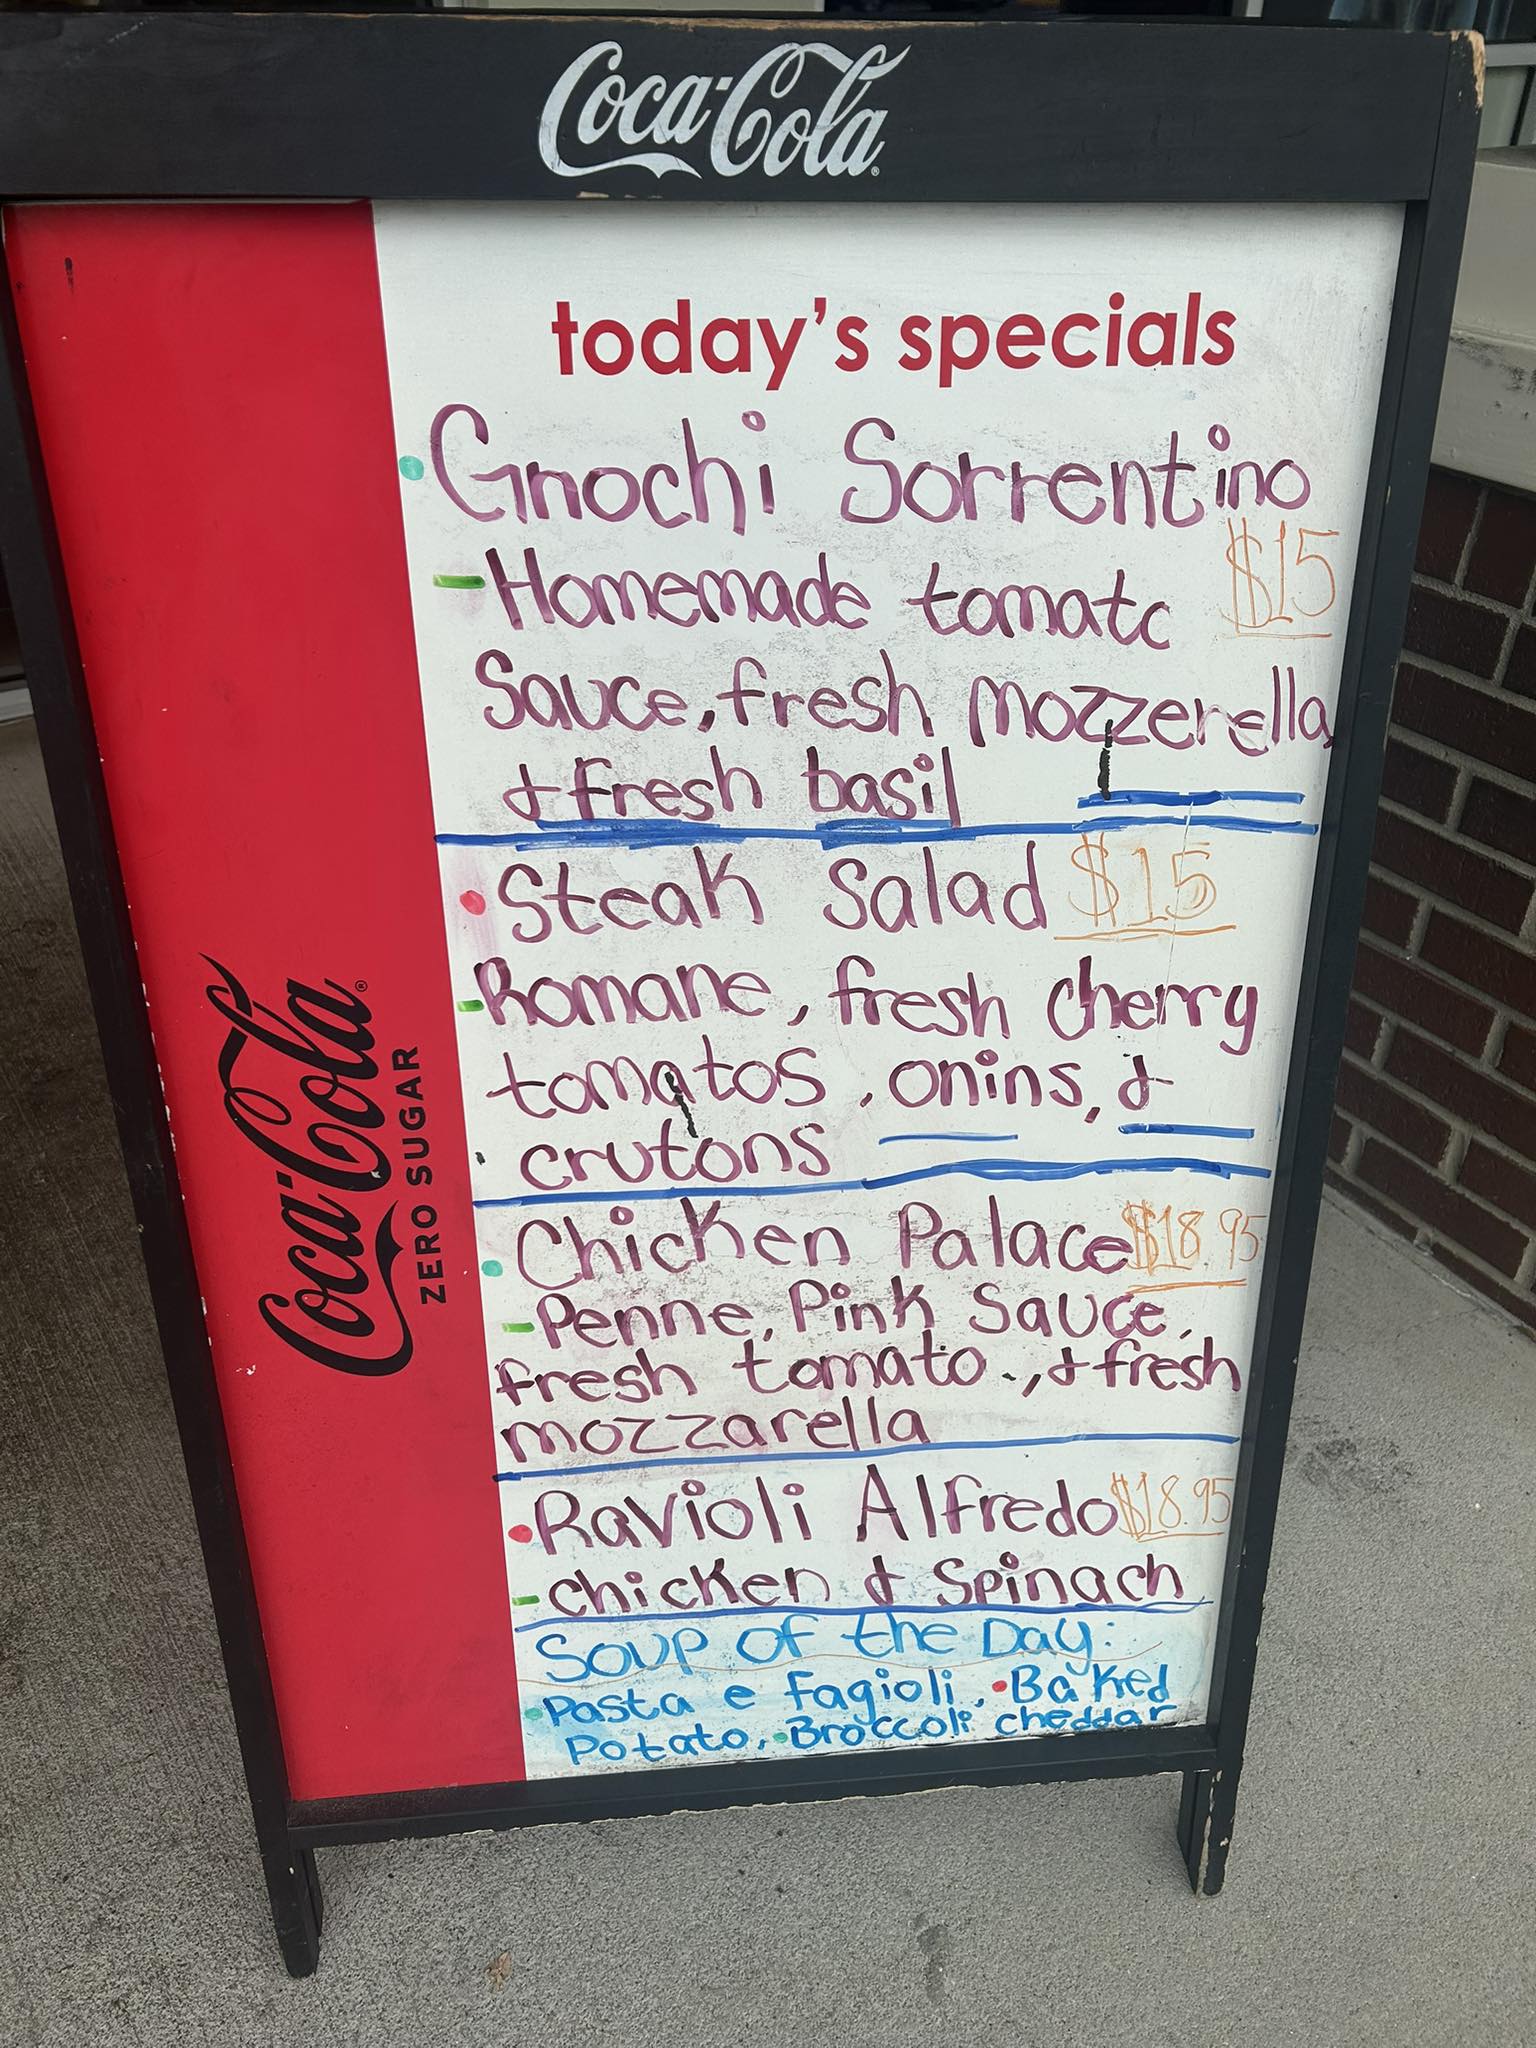 Coca-Cola
today's specials
Gnochi Sorrentino
$15
-Homemade tomato
Sauce, fresh mozzerella,
& fresh basil
Steak Salad $15
-Romane, fresh cherry
tomatos, onins, &
crutons
Chicken Palace $18.95
-Penne, Pink Sauce,
fresh tomato., & fresh
mozzarella
Ravioli Alfredo $18.95
-chicken & Spinach
Soup of the Day:
•Pasta e fagioli, •Baked
Potato, •Broccoli cheddar
Coca-Cola
ZERO SUGAR